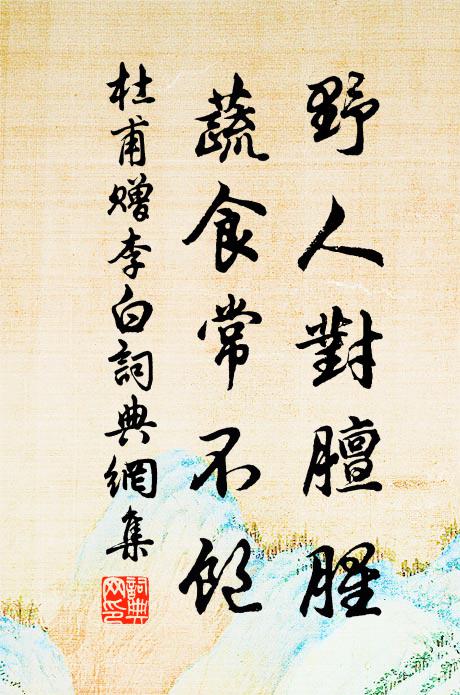 野人對膻腥
蔬食常不飽
杜甫贈李白詞典網集
詞典网印